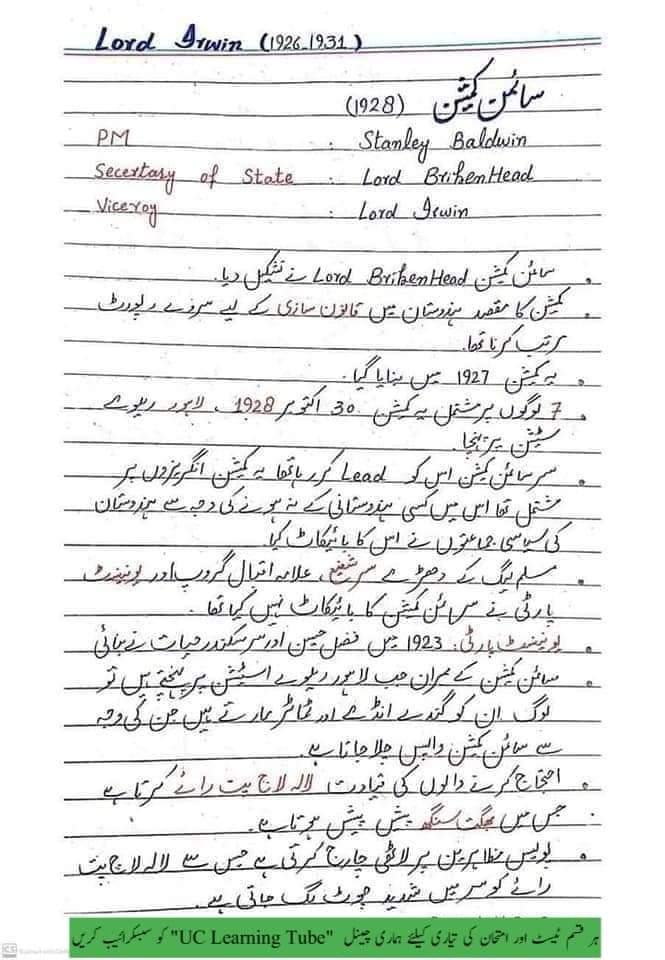 Lord Irwin (1926-1931)
سائمن کمیشن (1928)
PM : Stanley Baldwin
Secertasy of State : Lord BrikenHead
Viceroy : Lord Irwin
سائمن کمیشن Lord BrikenHead نے تشکیل دیا۔
کمیشن کا مقصد ہندوستان میں قانون سازی کے لیے سروے رپورٹ
مرتب کرنا تھا۔
یہ کمیشن 1927 میں بنایا گیا۔
7 لوگوں پر مشتمل یہ کمیشن 30 اکتوبر 1928، لاہور ریلوے
سٹیشن پر پہنچا۔
سر سائمن کمیشن اس کو Lead کر رہا تھا یہ کمیشن انگریزوں پر
مشتمل تھا اس میں کسی ہندوستانی کے نہ ہونے کی وجہ سے ہندوستان
کی سیاسی جماعتوں نے اس کا بائیکاٹ کیا
مسلم لیگ کے دھڑے سر شفیع، علامہ اقبال گروپ اور یونینسٹ
پارٹی نے سائمن کمیشن کا بائیکاٹ نہیں کیا تھا۔
یونینسٹ پارٹی: 1923 میں فضل حسین اور سر سکندر حیات نے بنائی
سائمن کمیشن کے ممبران جب لاہور ریلوے اسٹیشن پر پہنچتے ہیں تو
لوگ ان کو گندے انڈے اور ٹماٹر مارتے ہیں جن کی وجہ
سے سائمن کمیشن واپس چلا جاتا ہے۔
احتجاج کرنے والوں کی قیادت لالہ لاج پت رائے کرتا ہے
جس میں بھگت سنگھ پیش پیش ہوتا ہے۔
پولیس مظاہرین پر لاٹھی چارج کرتی ہے جس سے لالہ لاج پت
رائے کو سر میں شدید چوٹ لگ جاتی ہے۔
ہر قسم ٹیسٹ اور امتحان کی تیاری کیلئے ہماری چینل "UC Learning Tube" کو سبسکرائیب کریں
CS